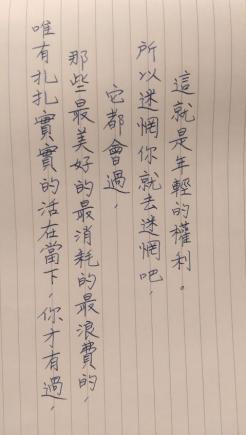 唯有扎扎實實的活在當下，你才有過，
那些最美好的最消耗的最浪費的，
它都會過，
所以迷惘你就去迷惘吧，
這就是年輕的權利。